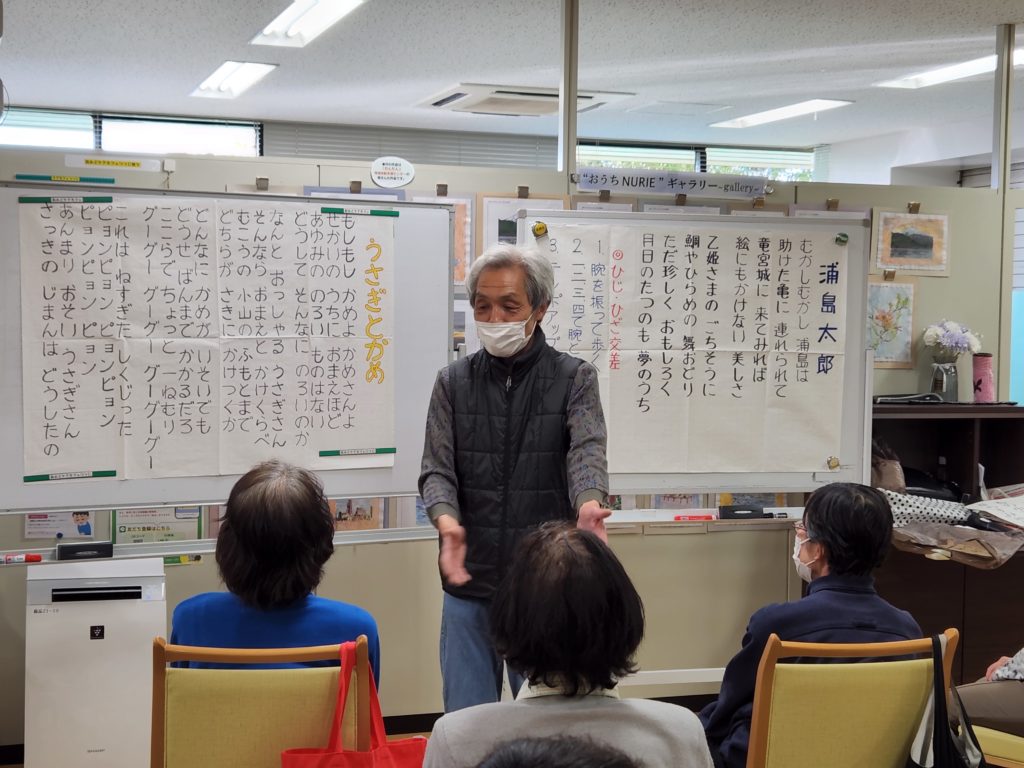 "おうち NURIE" ギャラリー~gallery~
浦島太郎
むかしむかし 浦島は
助けた亀に 連れられて
竜宮城に 来てみれば
絵にもかけない 美しさ
乙姫さまの ごちそうに
鯛やひらめの 舞おどり
ただ珍しく おもしろく
月日のたつのも 夢のうち
◎ひじ・ひざ交差
1 腕を振って歩
2 一二三四で腕
3
うさぎとかめ
もしもし かめよ かめさんよ
せかいの うちに おまえほど
あゆみの のろい ものはない
どうして そんなに のろいのか
なんと おっしゃる うさぎさん
そんなら おまえと かけくらべ
むこうの 小山の ふもとまで
どちらが さきに かけつくか
どんなに かめが いそいでも
どうせ ばんまで かかるだろ
ここらで ちょっと 一ねむり
グーグー グーグー グーグーグー
これは ねすぎた しくじった
ピョンピョン ピョンピョン
ピョンピョン ピョン
あんまり おそい うさぎさん
さっきの じまんは どうしたの
友だち登録はこちら
SHARP